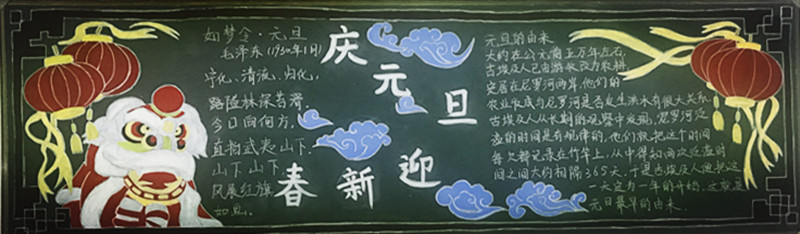 如梦令·元旦
毛泽东(1930年1月)
宁化、清流、归化,
路隘林深苔滑。
今日向何方,
直指武夷山下。
山下山下,
风展红旗
如画。
庆元旦
迎新春
元旦的由来
大约在公元前五万年左右,
古埃及人已由游牧改为农耕,
定居在尼罗河两岸,他们的
农业收成与尼罗河是否发生洪水有很大关系,
古埃及人从长期的观察中发现,尼罗河泛
滥的时间是有规律的,他们就把这个时间
每次都记录在竹竿上,从中得知两次泛滥时
间之间大约相隔365天,于是古埃及人便把这
一天定为一年的开始,这就是
元旦最早的由来.